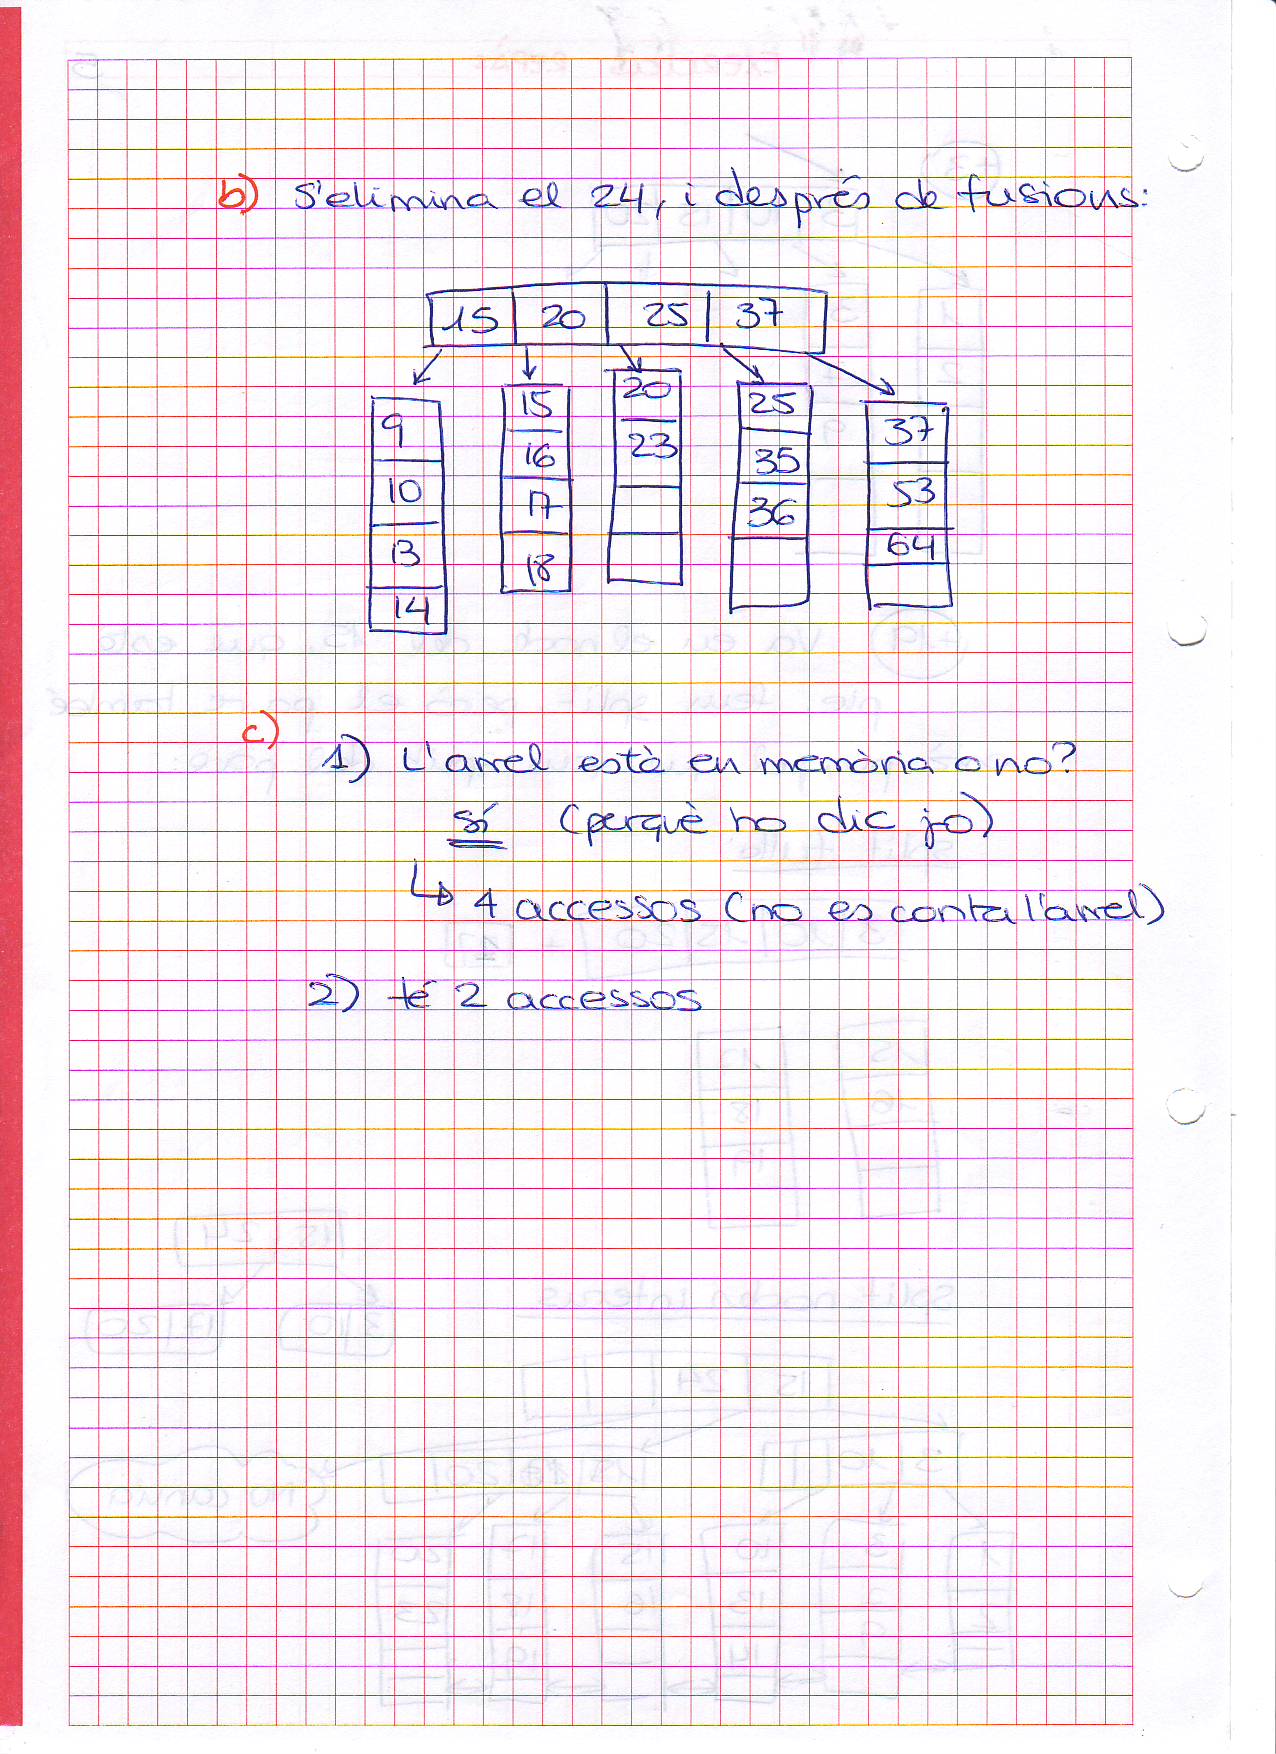 b) S'elimina el 24, i després de fusions:
15 20 25 37
9 15 20 25 37
10 16 23 35 53
13 17 36 64
14 18
c) 1) L'arrel està en memòria o no?
sí (perquè ho dic jo)
↳ 4 accessos (no es conta l'arrel)
2) té 2 accessos